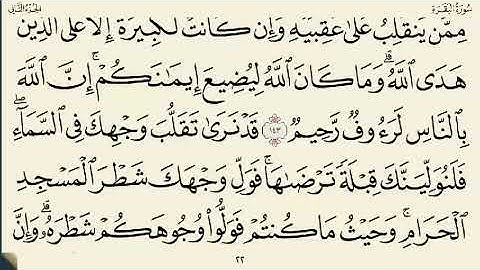 سُورَةُ البَقَرَةِ الجُزءُ الثَّانِي
مِمَّن يَنقَلِبُ عَلَىٰ عَقِبَيْهِ وَإِن كَانَتْ لَكَبِيرَةً إِلَّا عَلَى الَّذِينَ
هَدَى اللَّهُ ۗ وَمَا كَانَ اللَّهُ لِيُضِيعَ إِيمَانَكُمْ ۚ إِنَّ اللَّهَ
بِالنَّاسِ لَرَءُوفٌ رَّحِيمٌ ١٤٣ قَدْ نَرَىٰ تَقَلُّبَ وَجْهِكَ فِي السَّمَاءِ ۖ
فَلَنُوَلِّيَنَّكَ قِبْلَةً تَرْضَاهَا ۚ فَوَلِّ وَجْهَكَ شَطْرَ الْمَسْجِدِ
الْحَرَامِ ۚ وَحَيْثُ مَا كُنتُمْ فَوَلُّوا وُجُوهَكُمْ شَطْرَهُ ۗ وَإِنَّ
٢٢